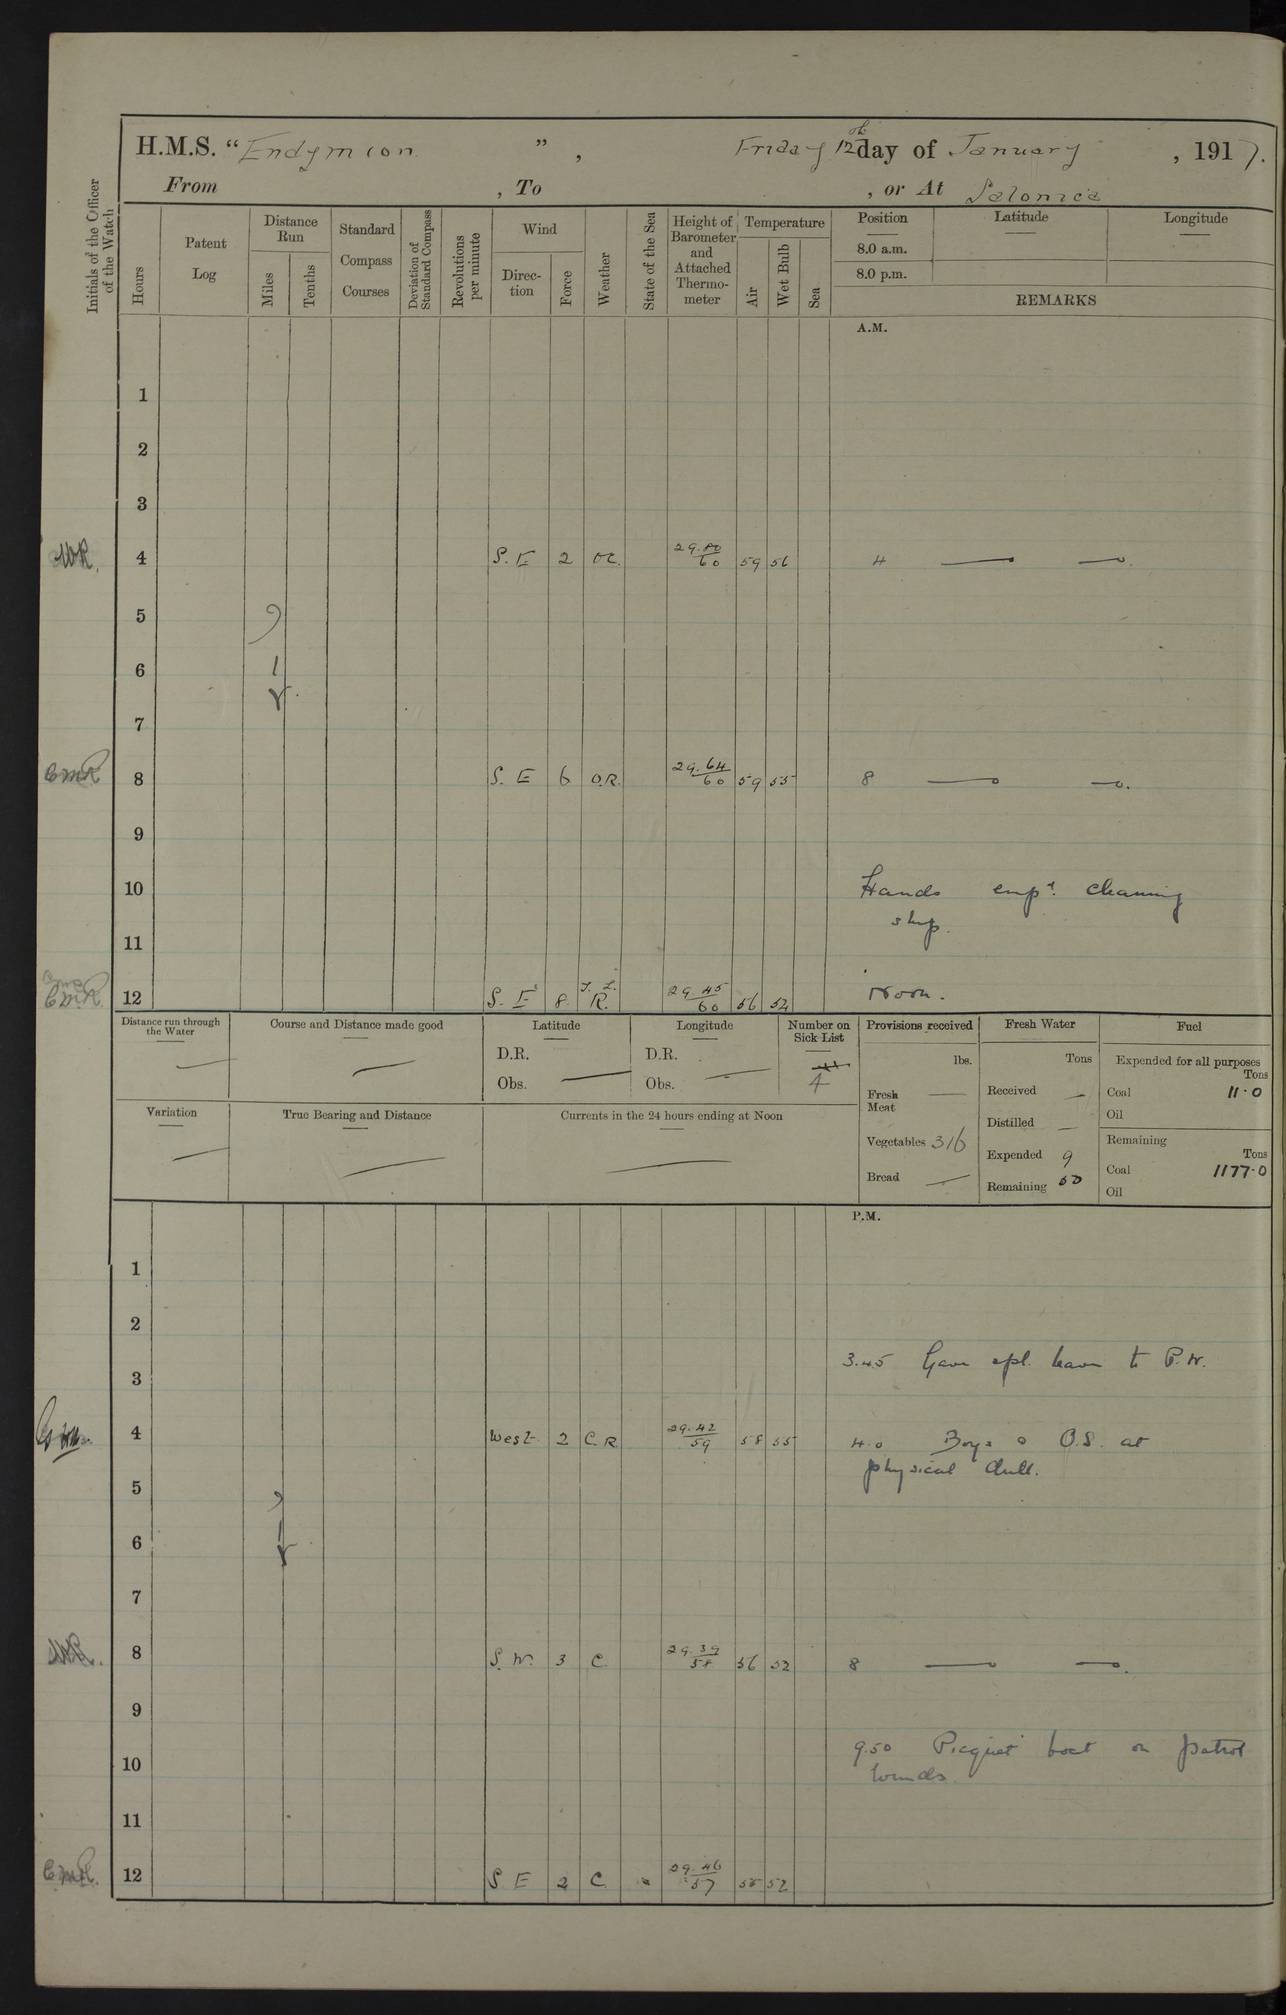 H.M.S. “Endymion”, Friday 12th day of January, 1917.
From , To , or At Salonica
Initials of the Officer of the Watch
Hours
Patent Log
Distance Run
Miles
Tenths
Standard Compass Courses
Deviation of Standard Compass
Revolutions per minute
Wind
Direc-tion
Force
Weather
State of the Sea
Height of Barometer and Attached Thermo-meter
Temperature
Air
Wet Bulb
Sea
Position
8.0 a.m.
8.0 p.m.
Latitude
Longitude
REMARKS
A.M.
1
2
3
4 S.E 2 OC. 29.80/60 59 56 4
5
6
7
8 S.E 6 O.R. 29.64/60 59 55 8
9
10 Hands emp d. cleaning
ship.
11
12 S.E 8 R. 29.45/60 56 52 Noon.
Distance run through the Water
Course and Distance made good
Latitude
D.R.
Obs.
Longitude
D.R.
Obs.
Number on Sick List
4
Variation
True Bearing and Distance
Currents in the 24 hours ending at Noon
Provisions received
lbs.
Fresh Meat
Vegetables 316
Bread
Fresh Water
Tons
Received
Distilled
Expended 9
Remaining 50
Fuel
Expended for all purposes
Tons
Coal 11.0
Oil
Remaining
Tons
Coal 1177.0
Oil
P.M.
1
2
3.45 Gave spl. leave to P.W.
3
4 West 2 C.R 29.42/59 58 55 4.0 Boys & O.S. at
physical drill.
5
6
7
8 S.W. 3 C. 29.39/58 56 52 8
9
9.50 Picquet boat on patrol
10
11
12 S E 2 C. 29.46/57 55 52